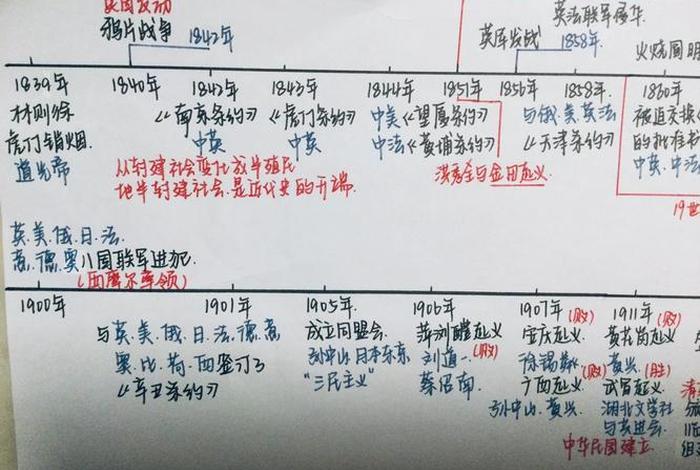 英国发动
鸦片战争
1842年
英法联军侵华
英军发战
1858年
火烧圆明
1839年
1840年
1842年
1843年
1844年
1851年
1856年
1858年
1860年
林则徐
虎门销烟
道光帝
《南京条约》
中英
《虎门条约》
中英
中美《望厦条约》
中法《黄埔条约》
与俄.美.英法
《天津条约》
被迫交换
的批准书
中英.中法
从封建社会变化成半殖民
地半封建社会.是近代史的开端.
洪秀全与金田起义.
19世
英.美.俄.日.法.
意.德.奥八国联军进犯.
(西摩尔率领)
1900年
1901年
1905年.
1906年
1907年(败)
1911年(败)
与英.美.俄.日.法.德.意
奥.比.荷.西签订了
《辛丑条约》
成立同盟会.
孙中山.日本东京
"三民主义"
萍浏醴起义
刘道一.(败)
蔡绍南.
安庆起义.
徐锡麟
广西起义(败)
孙中山.黄兴.
黄花岗起义
黄兴.(胜)
武昌起义.
湖北文学社
与共进会.
中华民国建立.